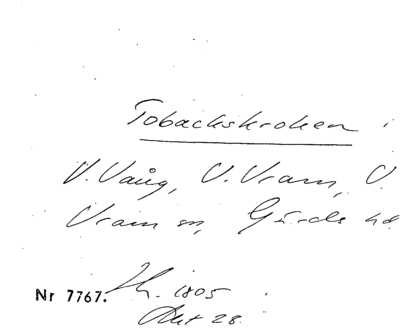 Tobackskroken i
V. Vång, V. Vram, V.
Vram sn, Gärds hd
Nr 7767. Th. 1805
Akt 28.